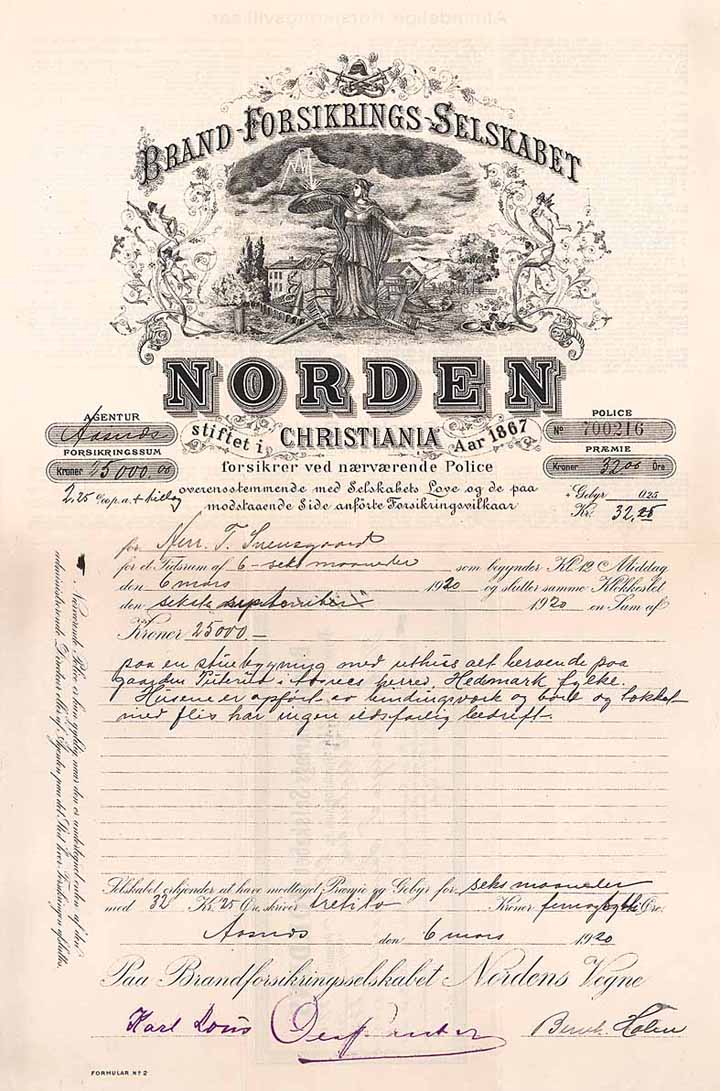 BRAND-FORSIKRINGS-SELSKABET
NORDEN
stiftet i CHRISTIANIA Aar 1867
AGENTUR
Aasnes
FORSIKRINGSSUM
Kroner 25000,00
POLICE
No 700216
PRÆMIE
Kroner 32,00 Öre
forsikrer ved nærværende Police
2.25 % p.a. + tillæg
overensstemmende med Selskabets Love og de paa
modstaaende Side anförte Forsikringsvilkaar
Gebyr 0.25
Kr. 32,25
for Herr. T. Svensgaard
for et Tidsrum af 6 - seks maaneder som begynder Kl 12 Middag
den 6 mars 1920 og slutter samme Klokkeslet
den september 1920 en Sum af
Kroner 25000 -
paa en stuebygning med uthus alt beroende paa
gaarden i herred, Hedmark fylke.
Husene er opført av bindingsverk og bord og tækket
med flis har ingen ildsfarlig bedrift.
Nærværende Police er kun gyldig naar den er undertegnet enten af den
administrerende Direktør eller af Agenten paa det Sted hvor Forsikringen afsluttes.
Selskabet erkjender at have modtaget Præmie og Gebyr for seks maaneder
med 32 Kr. 25 Öre, skriver trettito Kroner fem og tyve Öre.
Aasnes den 6 mars 1920
Paa Brandforsikringsselskabet Nordens Vegne
Karl
Bernh. Holen
FORMULAR No 2